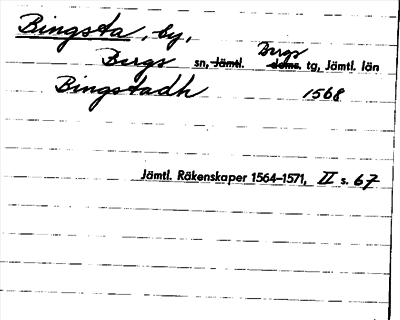 Bingsta, by,
Bergs sn, Jämtl. Bergs doms. tg, Jämtl. län
Bingstadh 1568
Jämtl. Räkenskaper 1564-1571, II s. 67